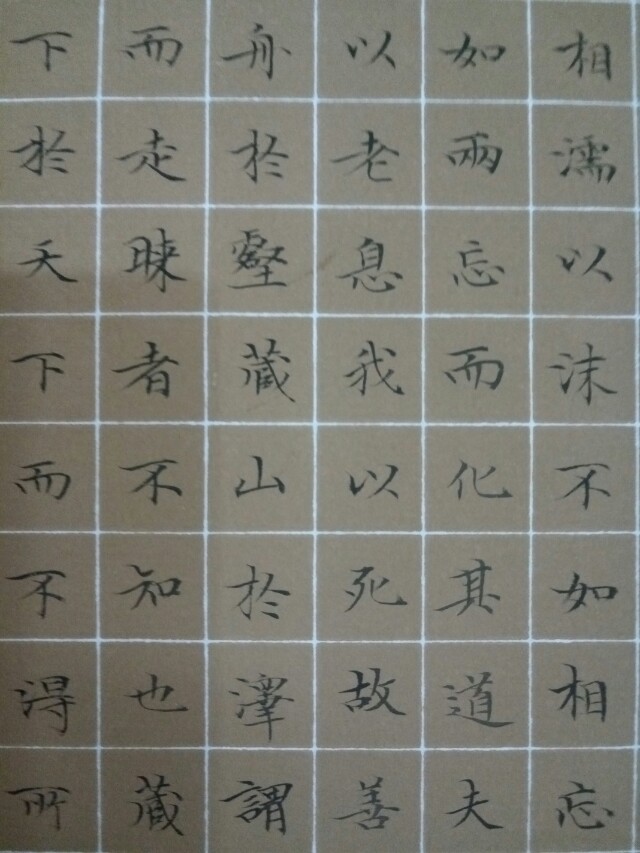 相濡以沫不如相忘
如兩忘而化其道夫
以老息我以死故善
舟於壑藏山於澤謂
而走昧者不知也藏
下於天下而不得所